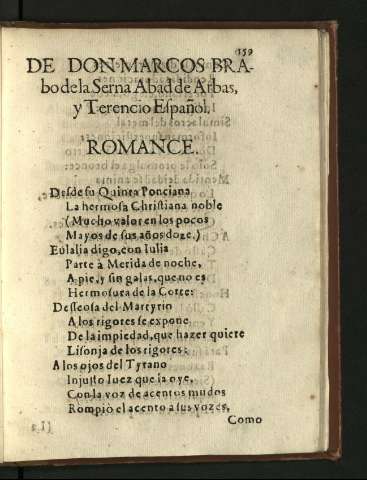 159
DE DON MARCOS BRA-
bo de la Serna Abad de Arbas,
y Terencio Español.
ROMANCE.
Desde su Quinta Ponciana
La hermosa Christiana noble
(Mucho valor en los pocos
Mayos de sus años doze.)
Eulalia digo, con Iulia
Parte à Merida de noche,
A pie, y sin galas, que no es
Hermosura de la Corte:
Desseosa del Martyrio
A los rigores se expone
De la impiedad, que hazer quiere
Lisonja de los rigores:
A los ojos del Tyrano
Injusto Iuez que la oye,
Con la voz de acentos mudos
Rompiò el acento a sus vozes,
Como